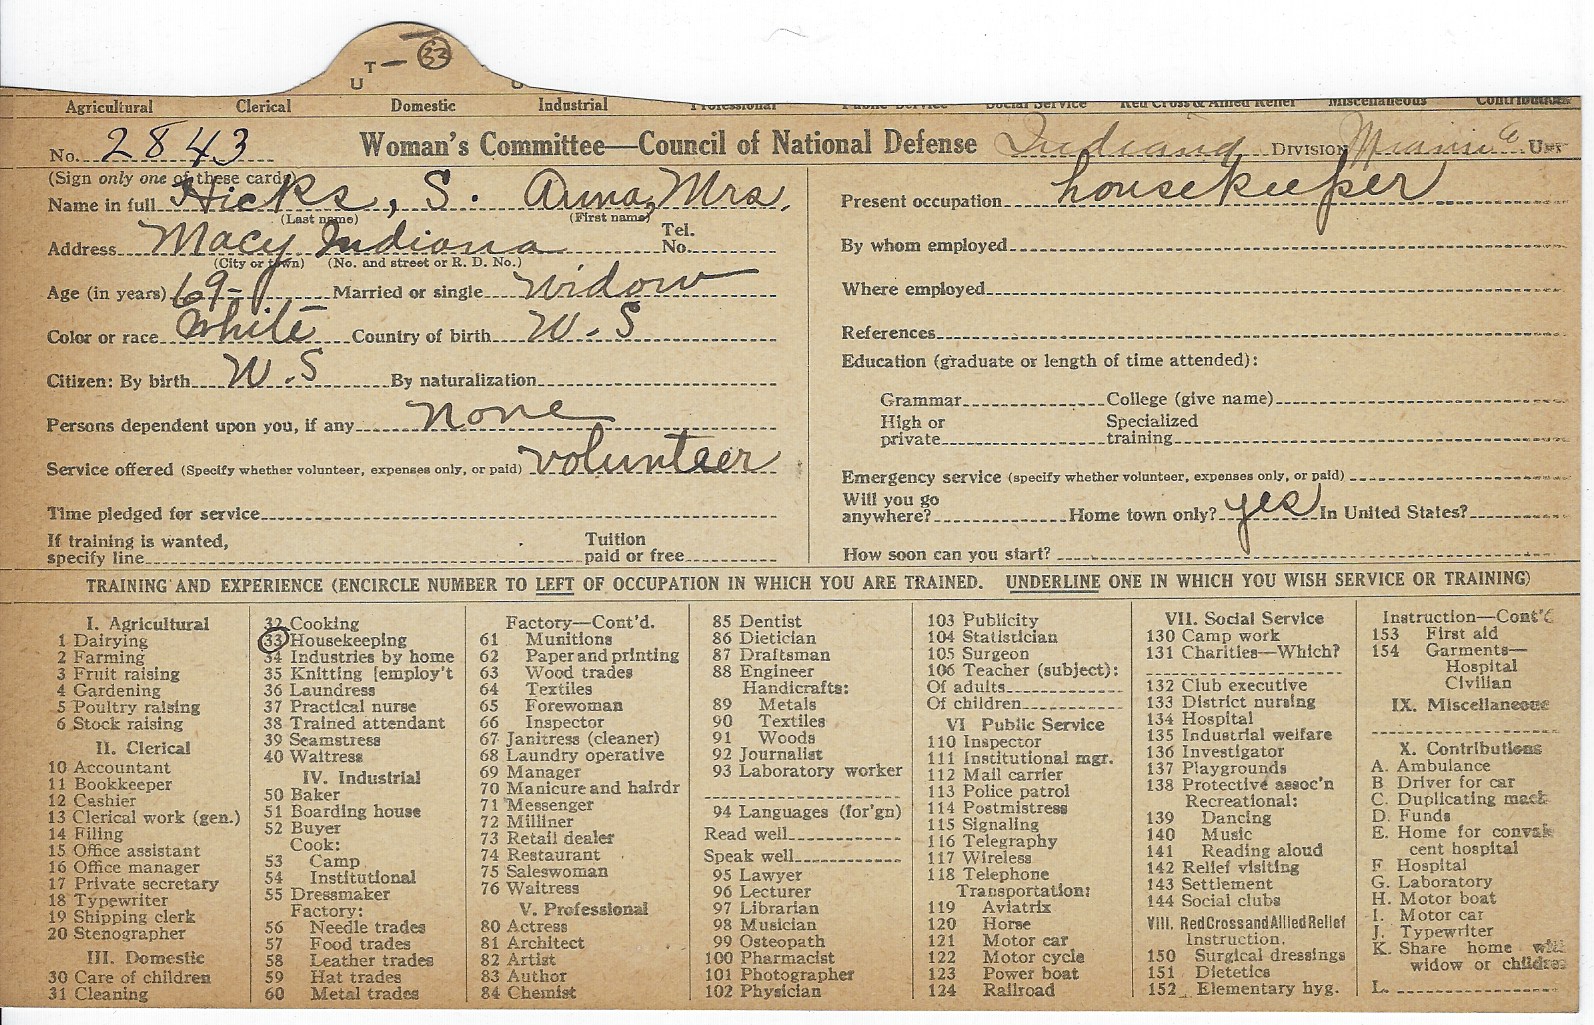 T — 33
U
Agricultural Clerical Domestic Industrial Professional Public Service Social Service Red Cross & Allied Relief Miscellaneous Contributions
No. 2843 Woman's Committee—Council of National Defense Indiana Division
(Sign only one of these cards)
Name in full Hicks, S. Anna, Mrs.
(Last name) (First name)
Address Macy Indiana Tel. No.
(City or town) (No. and street or R. D. No.)
Age (in years) 69- Married or single Widow
Color or race White Country of birth W.S
Citizen: By birth W.S By naturalization
Persons dependent upon you, if any none
Service offered (Specify whether volunteer, expenses only, or paid) volunteer
Time pledged for service
If training is wanted, specify line Tuition paid or free
Present occupation housekeeper
By whom employed
Where employed
References
Education (graduate or length of time attended):
Grammar College (give name)
High or private Specialized training
Emergency service (specify whether volunteer, expenses only, or paid)
Will you go anywhere? Home town only? yes In United States?
How soon can you start?
TRAINING AND EXPERIENCE (ENCIRCLE NUMBER TO LEFT OF OCCUPATION IN WHICH YOU ARE TRAINED. UNDERLINE ONE IN WHICH YOU WISH SERVICE OR TRAINING)
I. Agricultural
1 Dairying
2 Farming
3 Fruit raising
4 Gardening
5 Poultry raising
6 Stock raising
II. Clerical
10 Accountant
11 Bookkeeper
12 Cashier
13 Clerical work (gen.)
14 Filing
15 Office assistant
16 Office manager
17 Private secretary
18 Typewriter
19 Shipping clerk
20 Stenographer
III. Domestic
30 Care of children
31 Cleaning
32 Cooking
33 Housekeeping
34 Industries by home
35 Knitting [employ't
36 Laundress
37 Practical nurse
38 Trained attendant
39 Seamstress
40 Waitress
IV. Industrial
50 Baker
51 Boarding house
52 Buyer
Cook:
53 Camp
54 Institutional
55 Dressmaker
Factory:
56 Needle trades
57 Food trades
58 Leather trades
59 Hat trades
60 Metal trades
Factory—Cont'd.
61 Munitions
62 Paper and printing
63 Wood trades
64 Textiles
65 Forewoman
66 Inspector
67 Janitress (cleaner)
68 Laundry operative
69 Manager
70 Manicure and hairdr
71 Messenger
72 Milliner
73 Retail dealer
74 Restaurant
75 Saleswoman
76 Waitress
V. Professional
80 Actress
81 Architect
82 Artist
83 Author
84 Chemist
85 Dentist
86 Dietician
87 Draftsman
88 Engineer
Handicrafts:
89 Metals
90 Textiles
91 Woods
92 Journalist
93 Laboratory worker
94 Languages (for'gn)
Read well
Speak well
95 Lawyer
96 Lecturer
97 Librarian
98 Musician
99 Osteopath
100 Pharmacist
101 Photographer
102 Physician
103 Publicity
104 Statistician
105 Surgeon
106 Teacher (subject):
Of adults
Of children
VI Public Service
110 Inspector
111 Institutional mgr.
112 Mail carrier
113 Police patrol
114 Postmistress
115 Signaling
116 Telegraphy
117 Wireless
118 Telephone
Transportation:
119 Aviatrix
120 Horse
121 Motor car
122 Motor cycle
123 Power boat
124 Railroad
VII. Social Service
130 Camp work
131 Charities—Which?
132 Club executive
133 District nursing
134 Hospital
135 Industrial welfare
136 Investigator
137 Playgrounds
138 Protective assoc'n
Recreational:
139 Dancing
140 Music
141 Reading aloud
142 Relief visiting
143 Settlement
144 Social clubs
VIII. Red Cross and Allied Relief
Instruction.
150 Surgical dressings
151 Dietetics
152 Elementary hyg.
Instruction—Cont'd
153 First aid
154 Garments—
Hospital
Civilian
IX. Miscellaneous
X. Contributions
A. Ambulance
B Driver for car
C. Duplicating mach
D. Funds
E. Home for convales
cent hospital
F Hospital
G. Laboratory
H. Motor boat
I. Motor car
J. Typewriter
K. Share home with
widow or children
L.